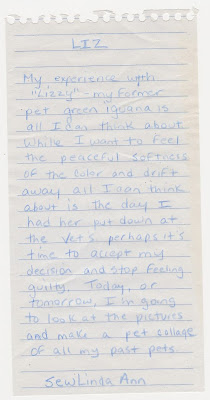 LIZ
My experience with
"Lizzy" - my former
pet green iguana is
all I can think about
While I want to feel
the peaceful softness
of the color and drift
away all I can think
about is the day I
had her put down at
the vets. perhaps it's
time to accept my
decision and stop feeling
guilty. Today, or
tomorrow, I'm going
to look at the pictures
and make a pet collage
of all my past pets.
SewLinda Ann